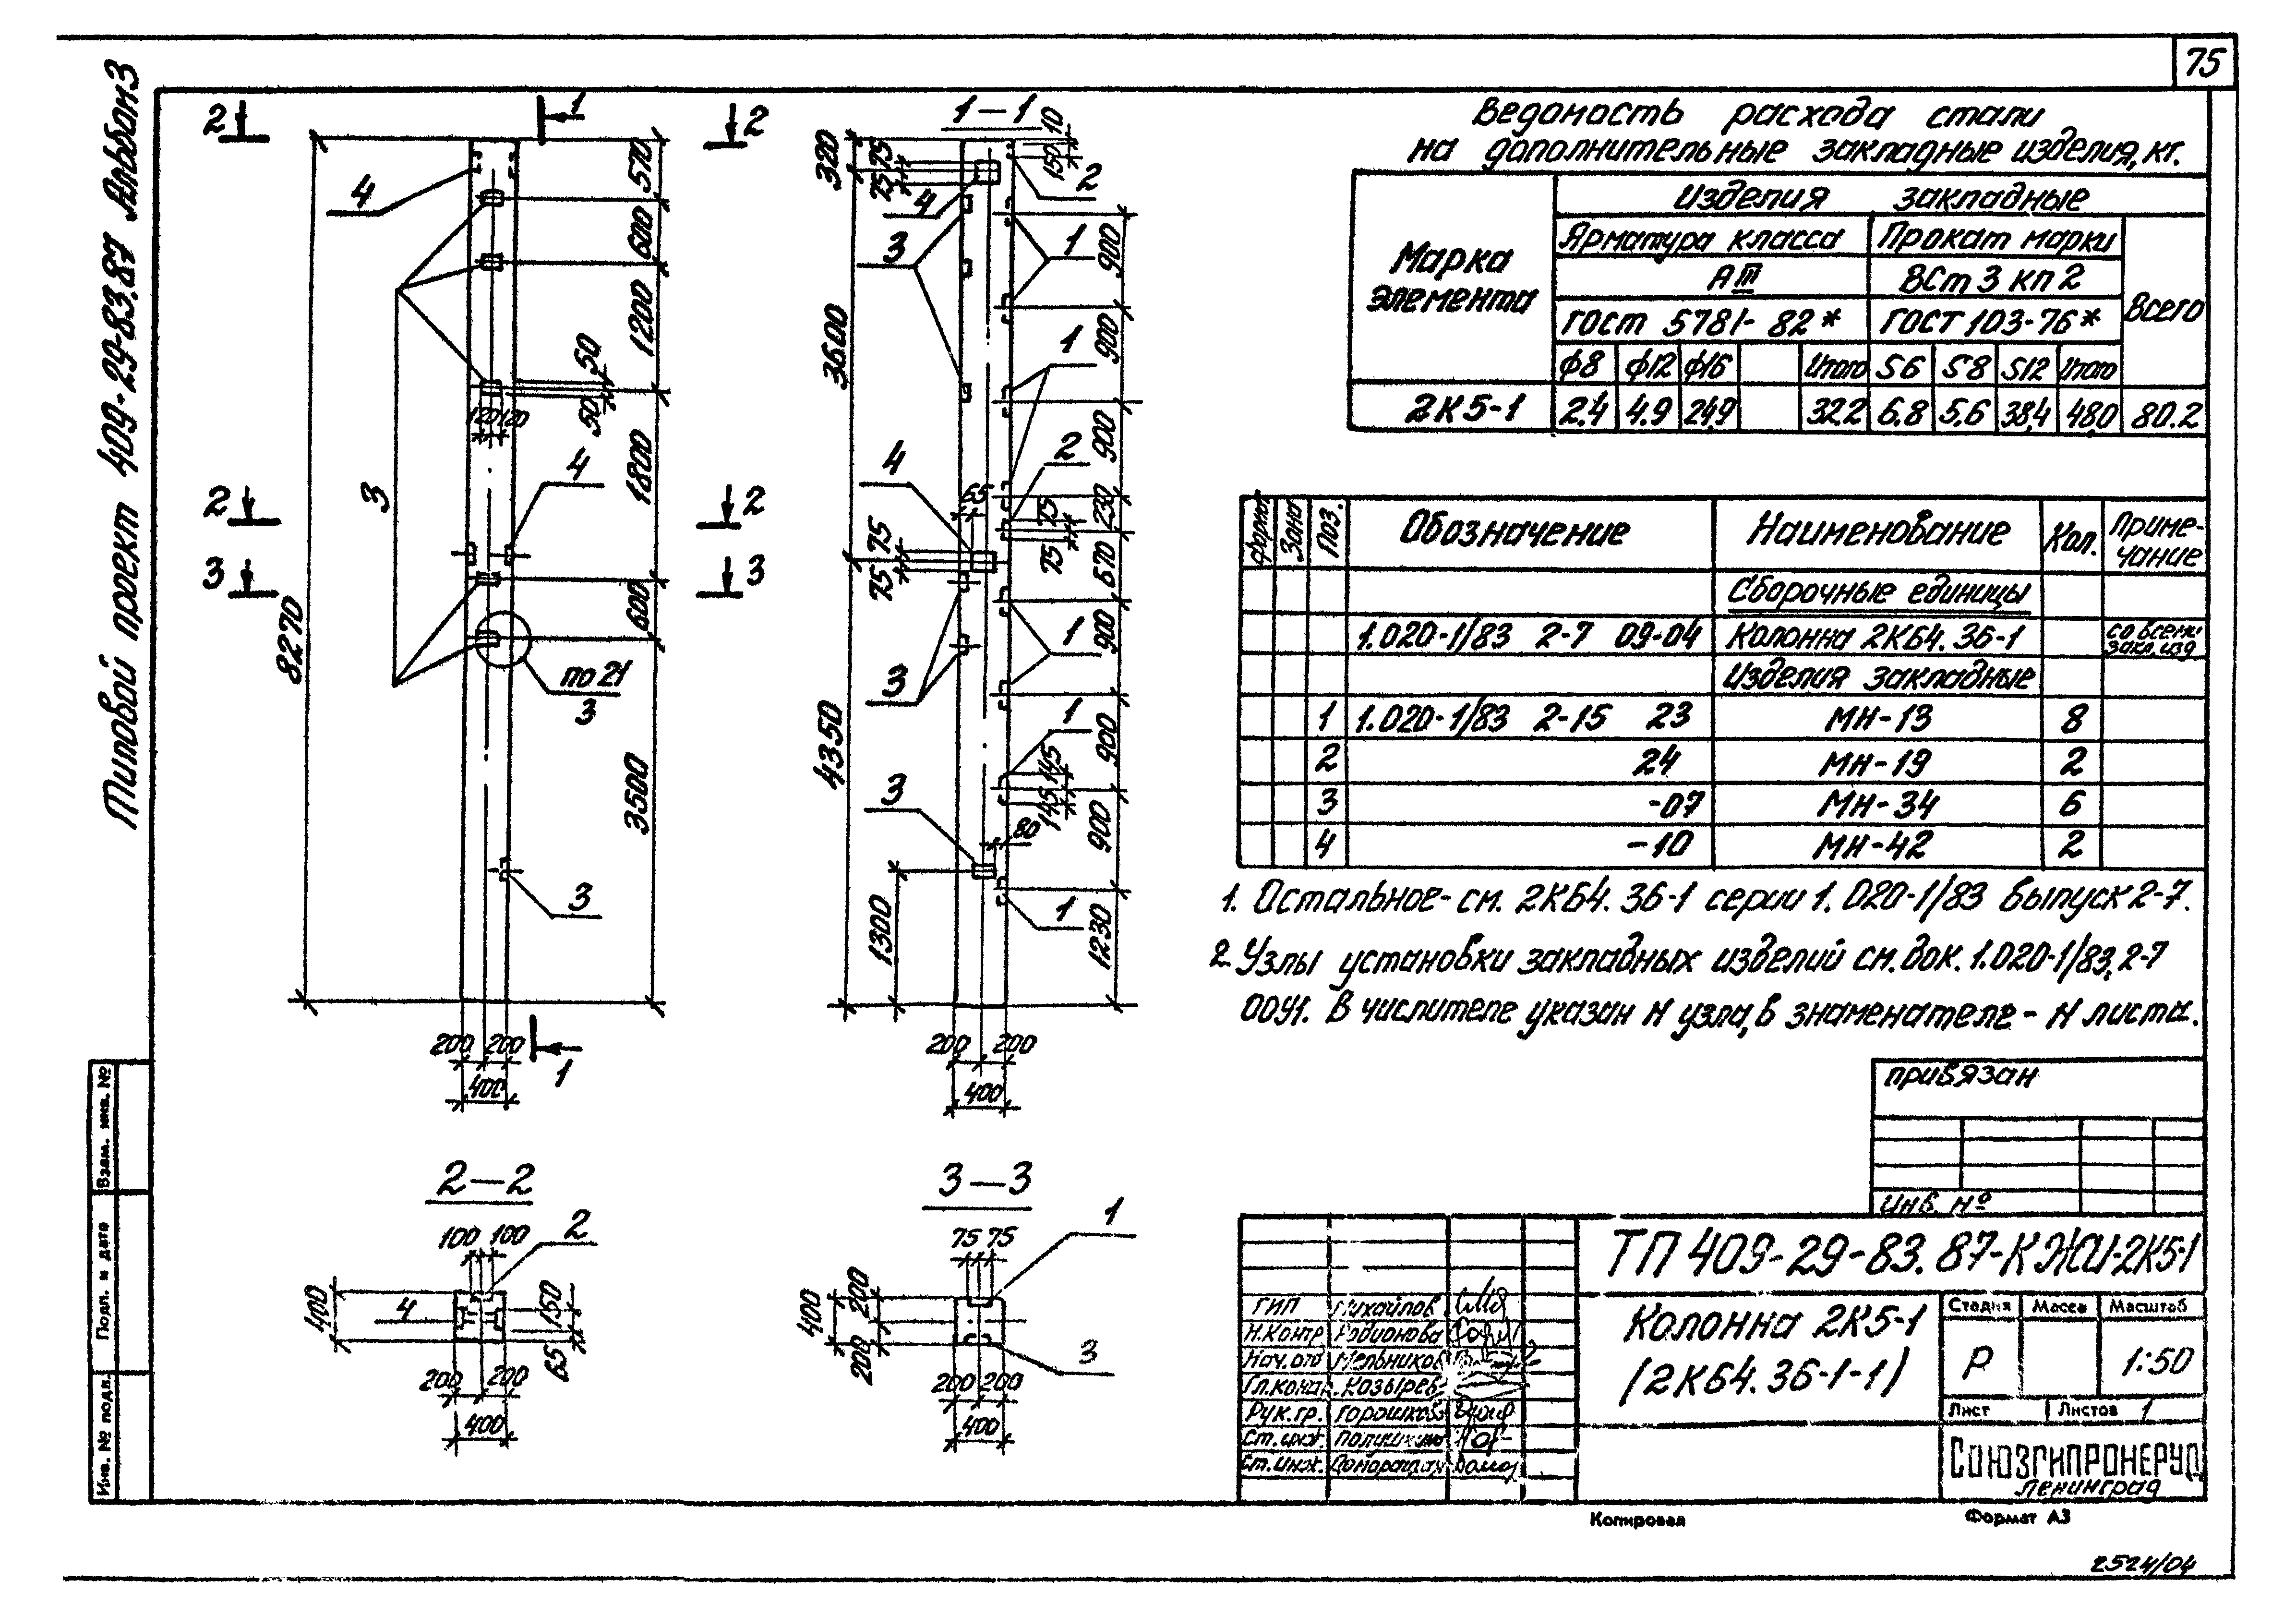 75
Типовой проект 409-29-83.87 Альбом 3
2
1
2
1-1
4
3
4
по 21
3
3
570
600
1200
1800
600
3500
8270
50
50
120 120
2
2
3
3
200 200
400
1
320
75
75
10
150
2
4
3
1
900
3600
1
900
900
2
4
65
75
75
75
75
230
670
3
1
900
4350
1
900
145
145
3
80
900
1300
1
1230
200 200
400
2-2
100 100
2
400
4
150
65
200 200
400
3-3
75 75
1
400
200
200
3
200 200
400
Ведомость расхода стали
на дополнительные закладные изделия, кг.
Марка элемента
Изделия закладные
Арматура класса
Прокат марки
Всего
АIII
ВСт 3 кп 2
ГОСТ 5781-82*
ГОСТ 103-76*
ф8 ф12 ф16 Итого S6 S8 S12 Итого
2К5-1 2.4 4.9 24,9 32.2 6.8 5,6 38,4 48,0 80.2
Формат Зона Поз. Обозначение Наименование Кол. Примечание
Сборочные единицы
1.020-1/83 2-7 09-04 Колонна 2КБ4.36-1 со всеми закл. изд
Изделия закладные
1 1.020-1/83 2-15 23 МН-13 8
2 24 МН-19 2
3 -07 МН-34 6
4 -10 МН-42 2
1. Остальное-см. 2КБ4.36-1 серии 1.020-1/83 выпуск 2-7.
2. Узлы установки закладных изделий см. док. 1.020-1/83, 2-7
00У1. В числителе указан N узла, в знаменателе - N листа.
привязан
Инв. №
ТП 409-29-83.87-КЖИ-2К5-1
ГИП Михайлов
Н.контр Родионова
Нач.отд Мельников
Гл.конст. Козырев
Рук.гр. Горошков
Ст.инж.
Ст.инж.
Колонна 2К5-1
(2КБ4.36-1-1)
Стадия Масса Масштаб
Р 1:50
Лист Листов 1
СОЮЗГИПРОНЕРУД
Ленинград
Взам. инв. №
Подп. и дата
Инв. № подл.
Копировал
Формат А3
2524/04